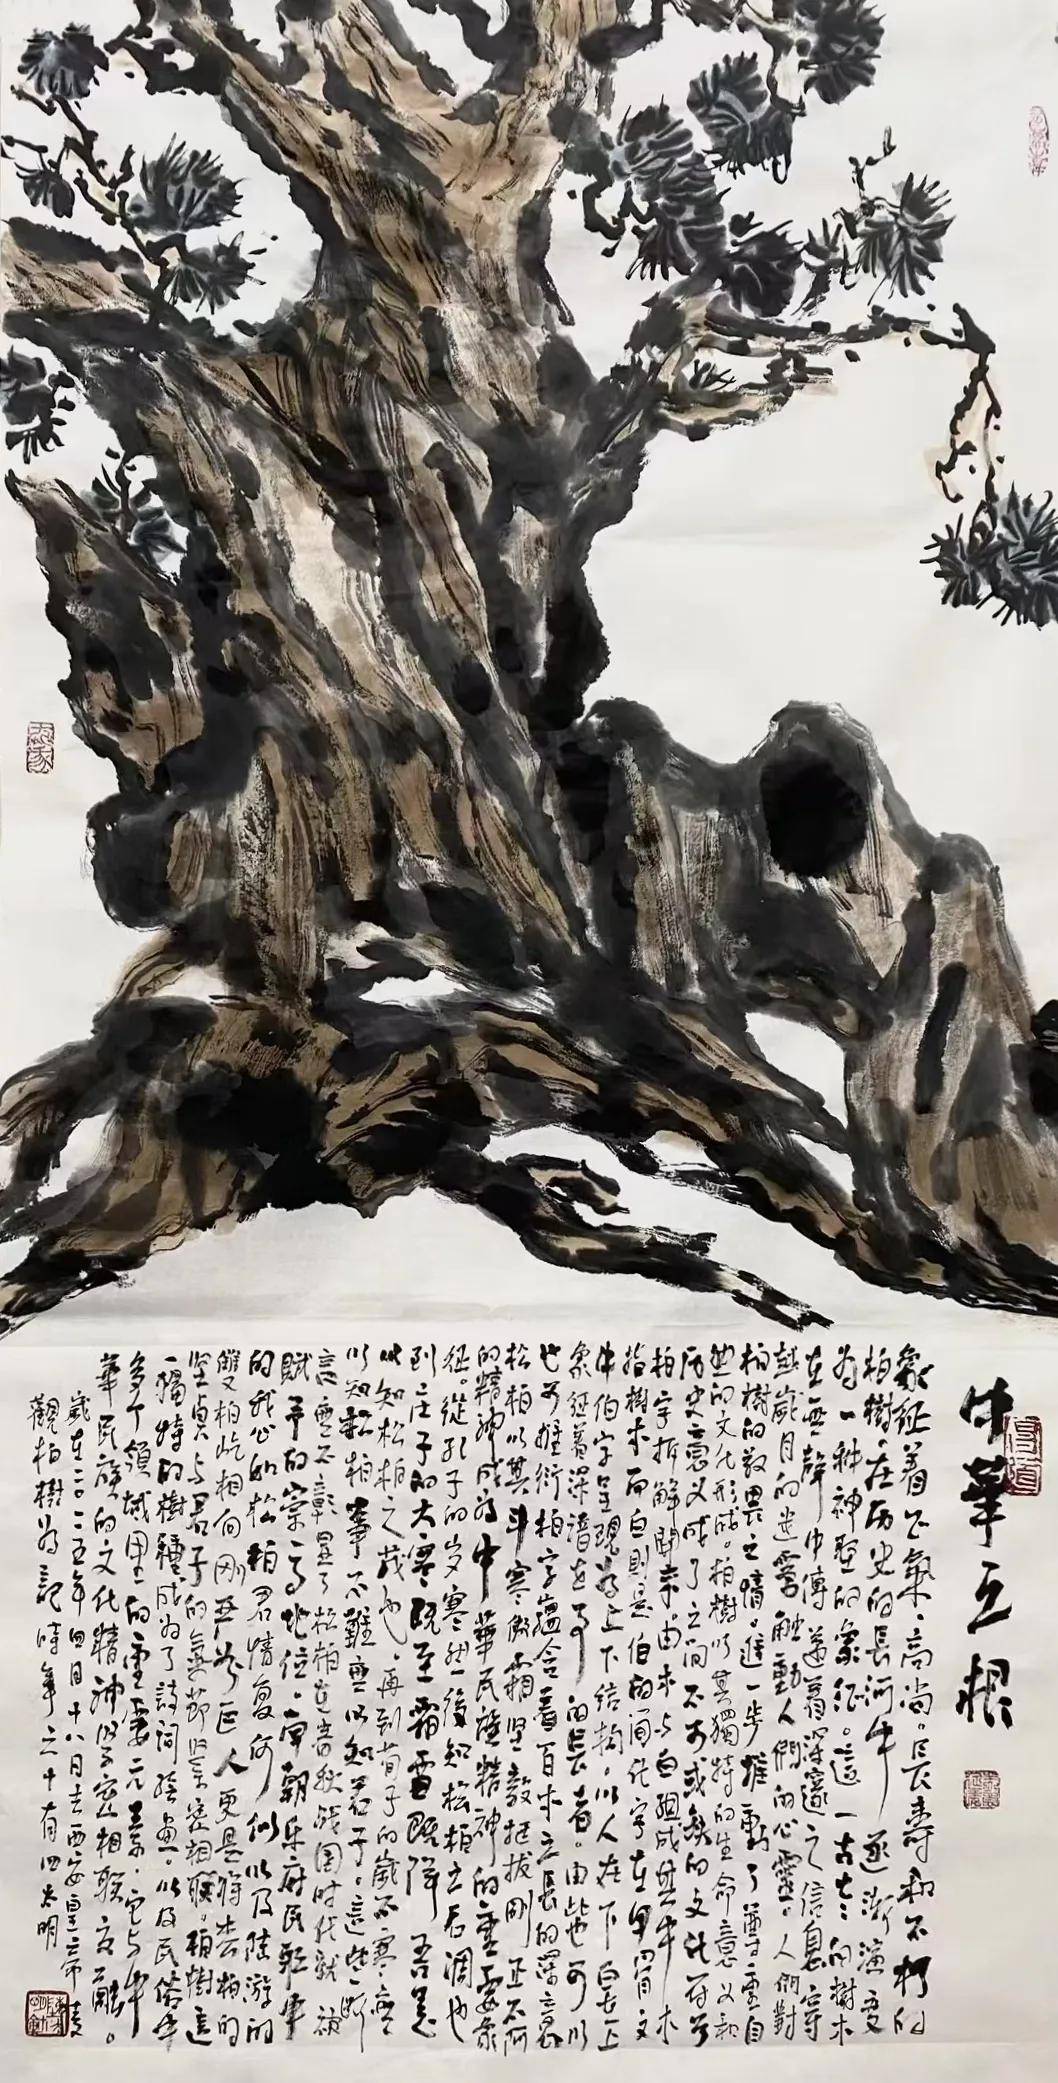 中華立根
象征着正氣、高尚、長壽和不朽的
柏樹在历史的長河中 逐漸演变
为一种神聖的象征。這一古老的樹木
在無聲中傳遞着深邃之信息穿
越歲月的迷雾触動人們的心靈。人們對
柏樹的敬畏之情。進一步推動了尊重自
然的文化形成。柏樹以其獨特的生命意义和
历史意义成了之间不可或缺的文化符号
柏字拆解開來。由木与白組成其中木
指樹木而白則是伯的简化字在甲骨文
中伯字呈現为上下结构。以人在下白在上
象征着深譜世事的長者。由此也可以
也可推衍柏字蕴含着百木之長的深意
松柏以其斗寒傲霜坚毅挺拔刚正不阿
的精神成为中華民族精神的重要象
征。從孔子的岁寒然後知松柏之后凋也
到庄子的大寒既至霜雪既降 吾是
以知松柏之茂也。再到荀子的歲不寒無
以知松柏 事不難無以知君子。這些断
言無不彰显了松柏在春秋战国时代就被
賦予的崇高地位。南朝乐府民歌中
的我心如松柏君情复何似以及陆游的
雙柏屹相向刚毅若正人更是將松柏的
坚贞与君子的氣節緊密相联。柏樹這
一獨特的樹種成为了詩詞绘画。以及民俗等
多个領域里的重要元素。它与中
華民族的文化精神緊密相联交融。
歲在二〇二五年四月十八月去西安皇帝陵
觀柏樹为記 時年之十有四太明